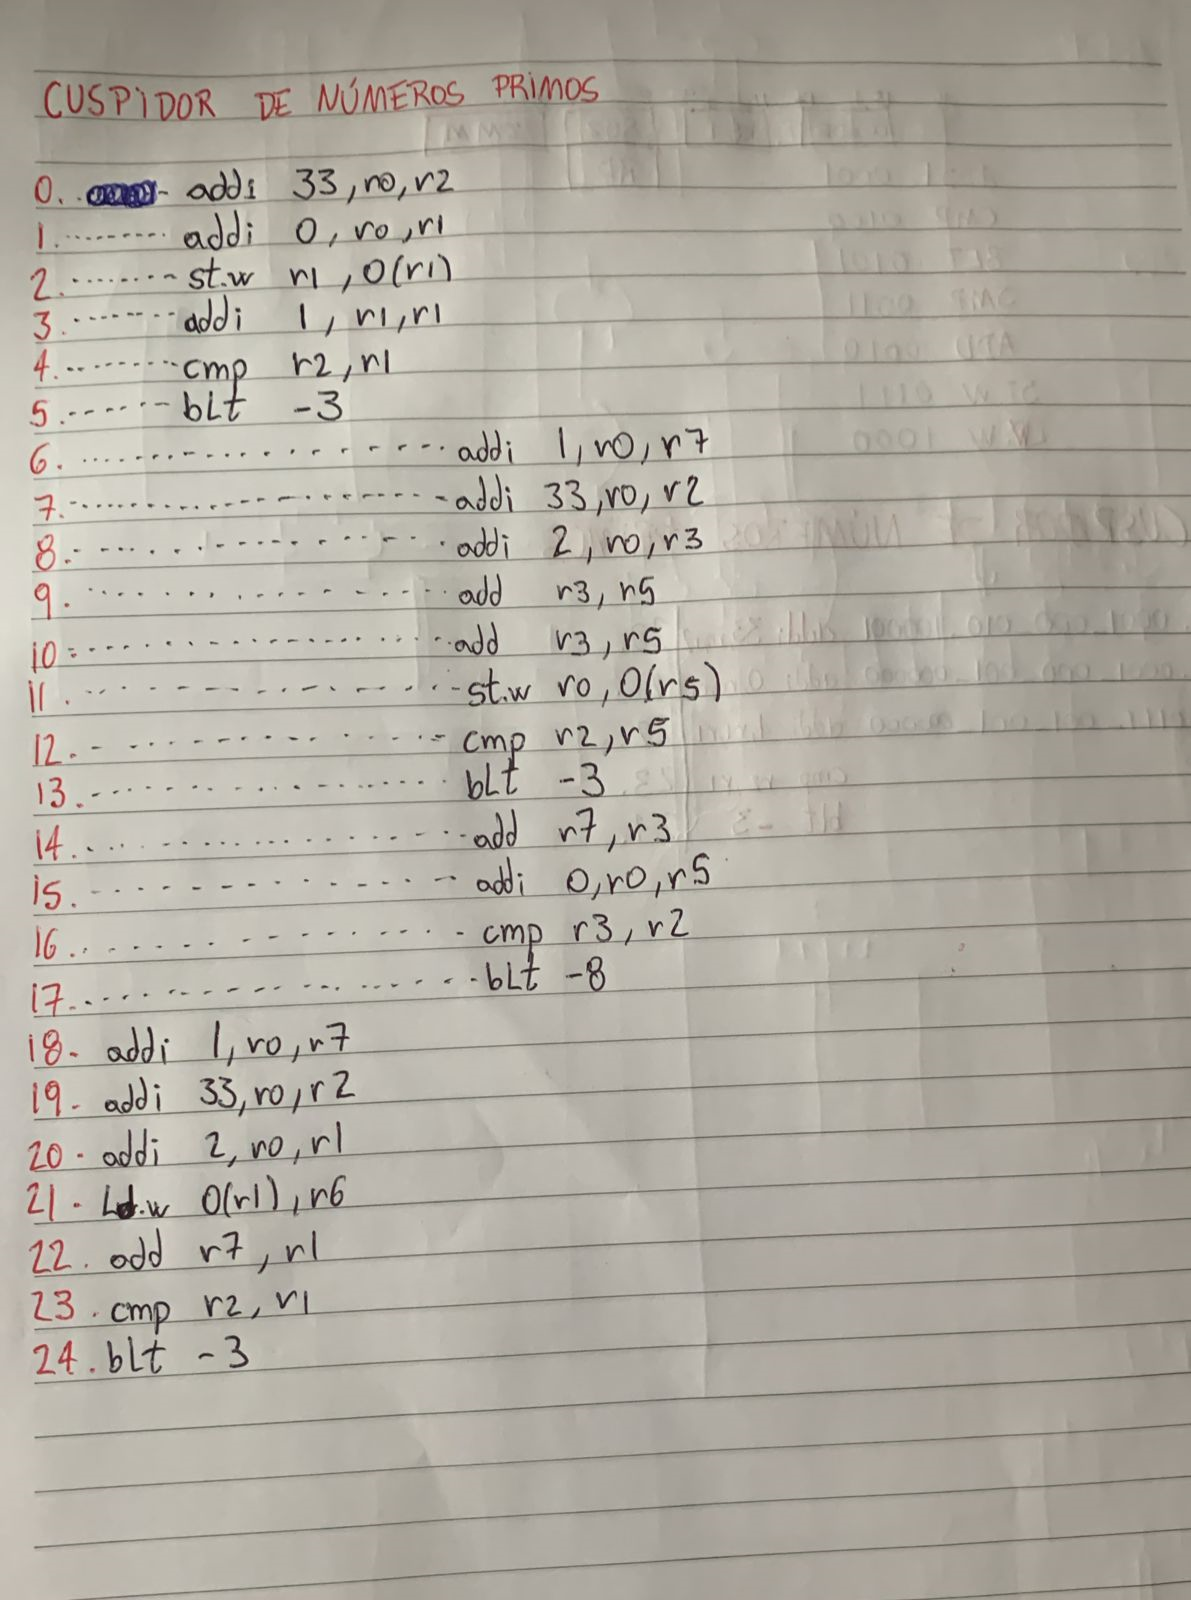 CUSPIDOR DE NÚMEROS PRIMOS
0. - addi 33, r0, r2
1. ......... addi 0, r0, r1
2. ........- st.w r1, 0(r1)
3. ........ addi 1, r1, r1
4. ......... cmp r2, r1
5. ......- bLt -3
6. .................... addi 1, r0, r7
7. ....................- addi 33, r0, r2
8. .................... addi 2, r0, r3
9. .................... add r3, r5
10. .................... add r3, r5
11. ....................- st.w r0, 0(r5)
12. ....................- cmp r2, r5
13. .................... bLt -3
14. .................... add r7, r3
15. ....................- addi 0, r0, r5
16. ....................- cmp r3, r2
17. .................... bLt -8
18- addi 1, r0, r7
19- addi 33, r0, r2
20- addi 2, r0, r1
21- Ld.w 0(r1), r6
22. add r7, r1
23. cmp r2, r1
24. bLt -3